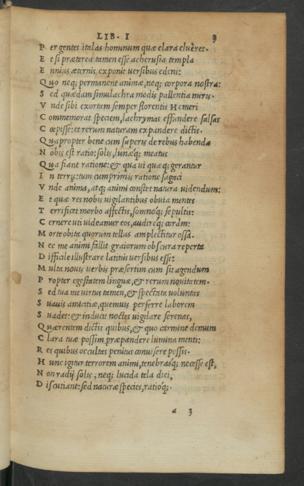 LIB. I 3
P er gentes italas hominum quæ clara clueret.
E t si præterea tamen esse acherusia templa
E nnius æternis exponit uersibus edens:
Q uo neq; permaneant animæ, neq; corpora nostra:
S ed quædam simulachra modis pallentia miris:
V nde sibi exortam semper florentis Homeri
C ommemorat speciem, lachrymas effundere salsas
C oepisse: et rerum naturam expandere dictis.
Q uapropter bene cum superis de rebus habenda
N obis est ratio: solis, lunæq; meatus
Q ua fiant ratione: & qua ui quæq; gerantur
I n terris: tum cumprimis ratione sagaci
V nde anima, atq; animi constet natura uidendum:
E t quæ res nobis uigilantibus obuia mentes
T errificet morbo affectis, somnoq; sepultis:
C ernere uti uideamur eos, audireq; coràm:
M orte obita quorum tellus amplectitur ossa.
N ec me animi fallit graiorum obscura reperta
D ifficile illustrare latinis uersibus esse:
M ulta nouis uerbis præsertim cum sit agendum
P ropter egestatem linguæ, & rerum nouitatem.
S ed tua me uirtus tamen, & spectata uoluptas
S uauis amicitiæ, quemuis perferre laborem
S uadet: & inducit noctes uigilare serenas,
Q uærentem dictis quibus, & quo carmine demum
C lara tuæ possim præpandere lumina menti:
R es quibus occultas penitus conuisere possis.
H unc igitur terrorem animi, tenebrasq; necesse est,
N on radij solis, neq; lucida tela diei,
D iscutiant: sed naturæ species, ratioq;.
a 3